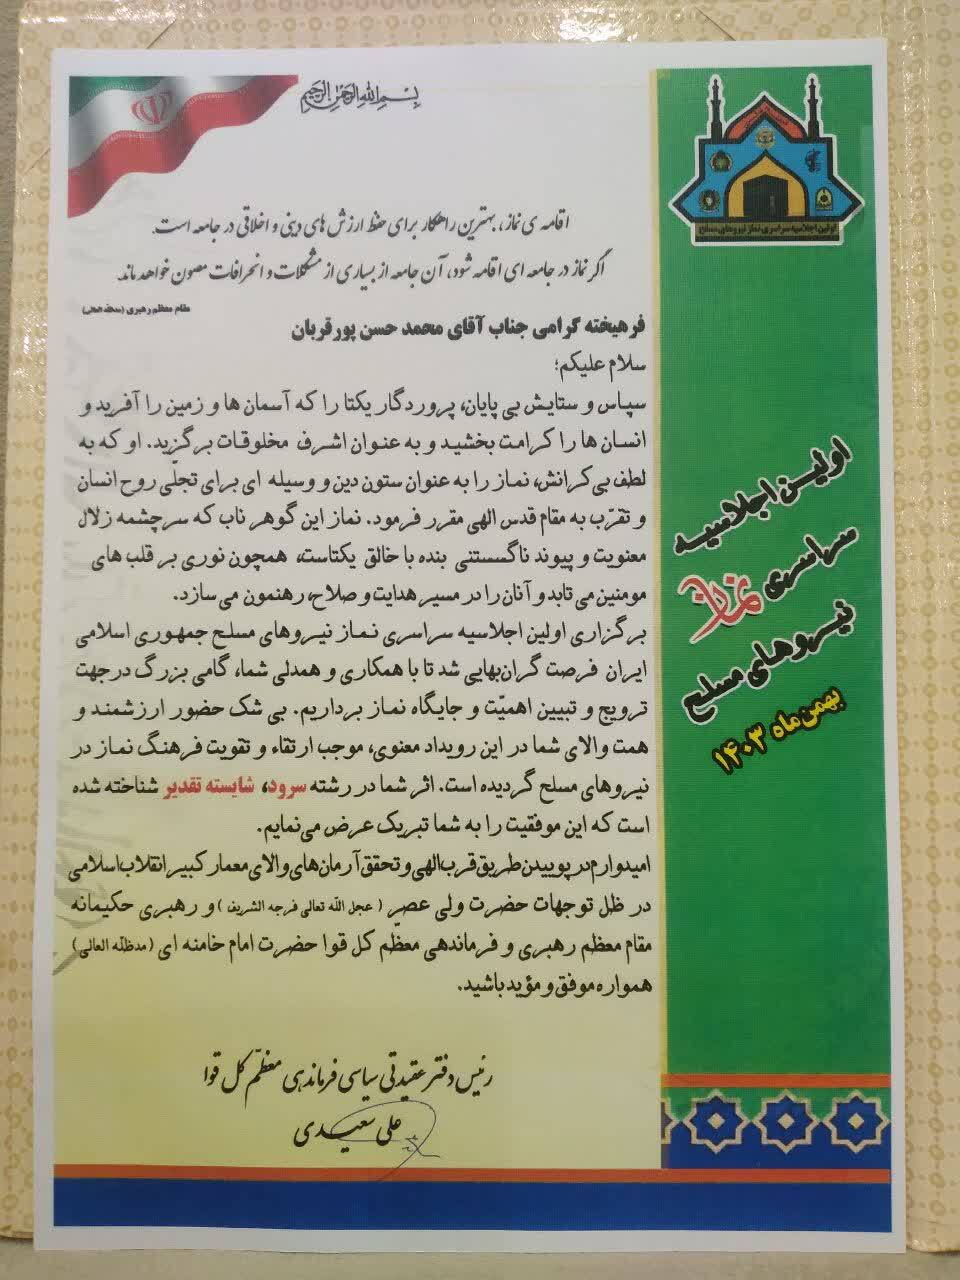 بسم الله الرحمن الرحیم
اقامه ی نماز، بهترین راهکار برای حفظ ارزش های دینی و اخلاقی در جامعه است.
اگر نماز در جامعه ای اقامه شود، آن جامعه از بسیاری از مشکلات و انحرافات مصون خواهد ماند.
مقام معظم رهبری (مدظله العالی)
فرهیخته گرامی جناب آقای محمد حسن پورقربان
سلام علیکم؛
سپاس و ستایش بی پایان، پروردگار یکتا را که آسمان ها و زمین را آفرید و
انسان ها را کرامت بخشید و به عنوان اشرف مخلوقات برگزید. او که به
لطف بی‌کرانش، نماز را به عنوان ستون دین و وسیله ای برای تجلّی روح انسان
و تقرّب به مقام قدس الهی مقرر فرمود. نماز این گوهر ناب که سرچشمه زلال
معنویت و پیوند ناگسستنی بنده با خالق یکتاست، همچون نوری بر قلب های
مومنین می تابد و آنان را در مسیر هدایت و صلاح، رهنمون می سازد.
برگزاری اولین اجلاسیه سراسری نماز نیروهای مسلح جمهوری اسلامی
ایران فرصت گران‌بهایی شد تا با همکاری و همدلی شما، گامی بزرگ در جهت
ترویج و تبیین اهمیّت و جایگاه نماز برداریم. بی شک حضور ارزشمند و
همت والای شما در این رویداد معنوی، موجب ارتقاء و تقویت فرهنگ نماز در
نیروهای مسلح گردیده است. اثر شما در رشته سرود، شایسته تقدیر شناخته شده
است که این موفقیت را به شما تبریک عرض می‌نمایم.
امیدوارم در پوییدن طریق قرب الهی و تحقق آرمان‌های والای معمار کبیر انقلاب اسلامی
در ظل توجهات حضرت ولی عصر (عجل الله تعالی فرجه الشریف) و رهبری حکیمانه
مقام معظم رهبری و فرماندهی معظم کل قوا حضرت امام خامنه ای (مدظلّه العالی)
همواره موفق و مؤید باشید.
رئیس دفتر عقیدتی سیاسی فرماندهی معظّم کل قوا
علی سعیدی
اولین اجلاسیه سراسری نماز نیروهای مسلح
اولین اجلاسیه
سراسری نماز
نیروهای مسلح
بهمن ماه ۱۴۰۳